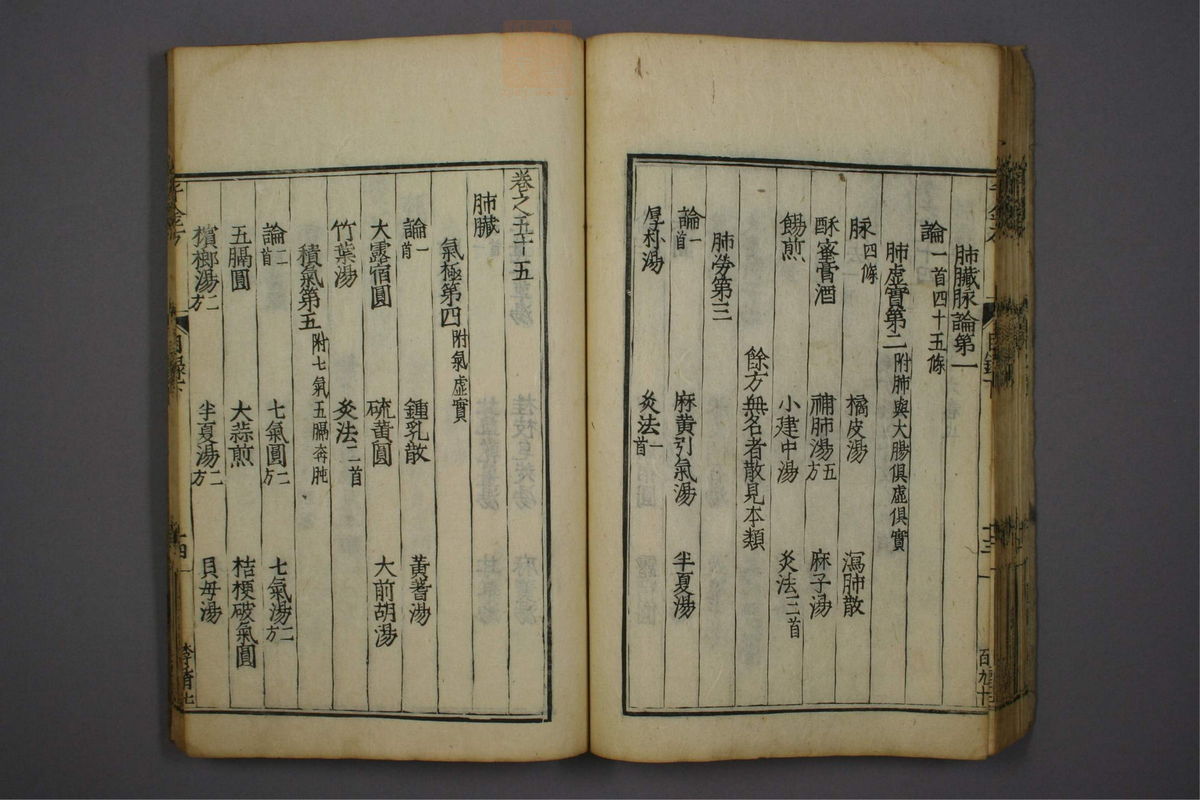 肺臓脉論第一
論一首四十五條
肺虛實第二附肺與大腸俱虛俱實
脉四條 橘皮湯 瀉肺散
酥蜜膏酒 補肺湯五方 麻子湯
餳煎 小建中湯 灸法三首
餘方無名者散見本類
肺勞第三
論一首 麻黃引氣湯 半夏湯
厚朴湯 灸法一首
卷之五十五
肺臓
氣極第四附氣虛實
論一首 鍾乳散 黃蓍湯
大露宿圓 硫黃圓 大前胡湯
竹葉湯 灸法二首
積氣第五附七氣五膈奔肫
論二首 七氣圓二方 七氣湯二方
五膈圓 大蒜煎 桔梗破氣圓
檳榔湯二方 半夏湯二方 貝母湯